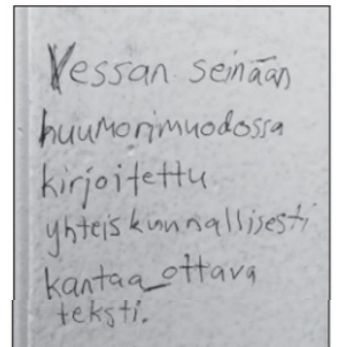 Vessan seinään
huumorimuodossa
kirjoitettu
yhteiskunnallisesti
kantaa_ottava
teksti.